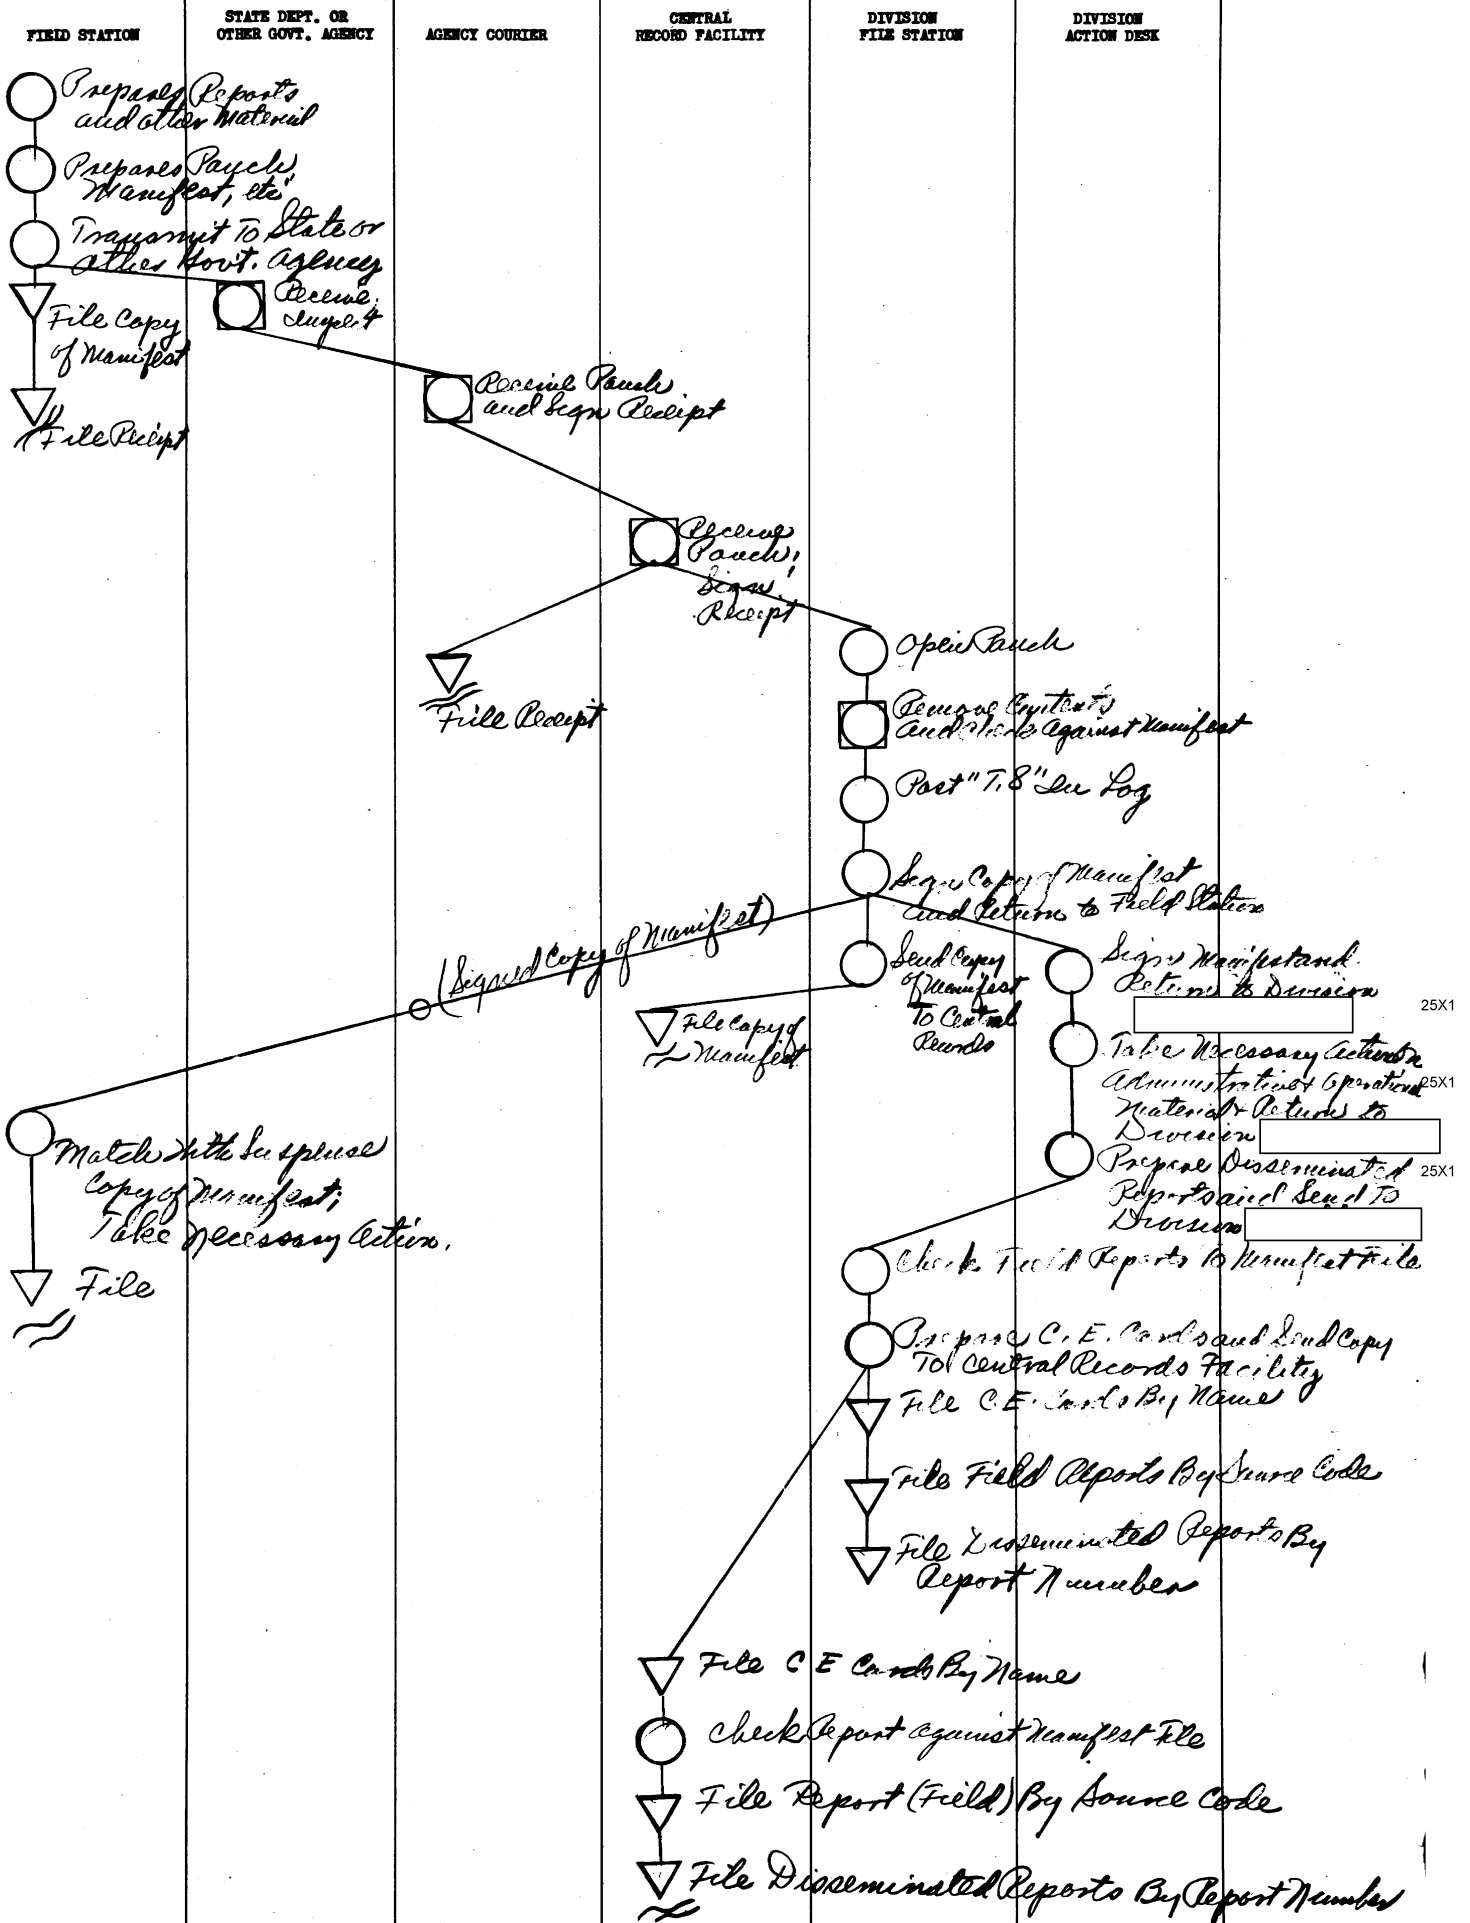 FIELD STATION
STATE DEPT. OR
OTHER GOVT. AGENCY
AGENCY COURIER
CENTRAL
RECORD FACILITY
DIVISION
FILE STATION
DIVISION
ACTION DESK
Prepares Reports
and other Material
Prepares Pouch,
Manifest, etc
Transmit To State or
other Govt. Agency
File Copy
of Manifest
File Receipt
Receive
Receive Pouch
and Sign Receipt
Receive
Pouch;
Sign
Receipt
File Receipt
Open Pouch
Remove Contents
and Check Against Manifest
Post "T.8" In Log
Sign Copy of Manifest
and Return to Field Station
(Signed Copy of Manifest)
Send Copy
of Manifest
To Central
Records
File Copy of
Manifest
Sign Manifest and
Return to Division
25X1
Take Necessary Action on
Administrative & Operational
25X1
Material & Return to
Division
Prepare Disseminated
25X1
Reports and Send To
Division
Match with Suspense
Copy of Manifest;
Take Necessary Action.
File
Check Field Reports To Manifest File
Prepare C. E. Cards and Send Copy
To Central Records Facility
File C.E. Cards By Name
File Field Reports By Source Code
File Disseminated Reports By
Report Number
File C E Cards By Name
Check Report against Manifest File
File Report (Field) By Source Code
File Disseminated Reports By Report Number